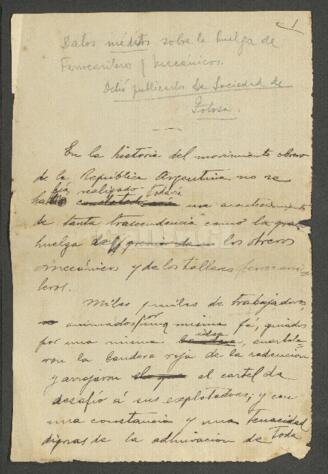 1
Datos inéditos sobre la huelga de
Ferrocarileros y mecánicos.
Debió publicarla la Sociedad de
Tolosa.
En la historia del movimiento obrero
de la República Argentina no se
había realizado todavía
un acontecimiento
de tanta trascendencia como la gran
huelga de los obreros
mecánicos y de los talleres ferrocarri-
leros.
Miles y miles de trabajadores,
animados por una misma fé, guiados
por una misma idea, enarbola-
ron la bandera roja de la redención
y arrojaron el cartel de
desafío á sus explotadores, y con
una constancia y una tenacidad
dignas de la admiración de toda